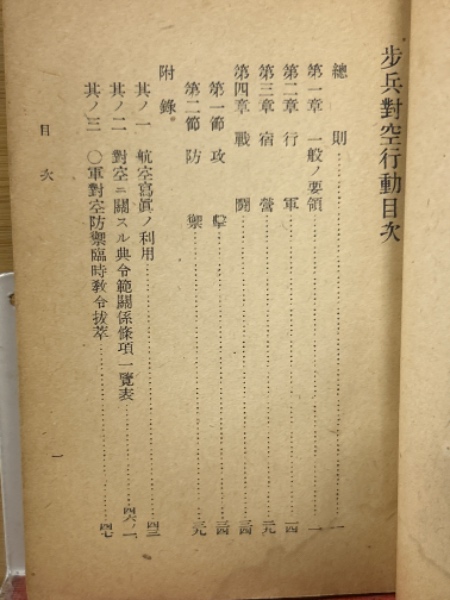 步兵對空行動目次
總則……一
第一章 一般ノ要領……一
第二章 行軍……一四
第三章 宿營……二九
第四章 戰鬪……三四
第一節 攻擊……三四
第二節 防禦……三九
附錄
其ノ一 航空寫眞ノ利用……四三
其ノ二 對空ニ關スル典令範關係條項一覽表……四六ノ一
其ノ三 〇軍對空防禦臨時敎令拔萃……四七
目次
一